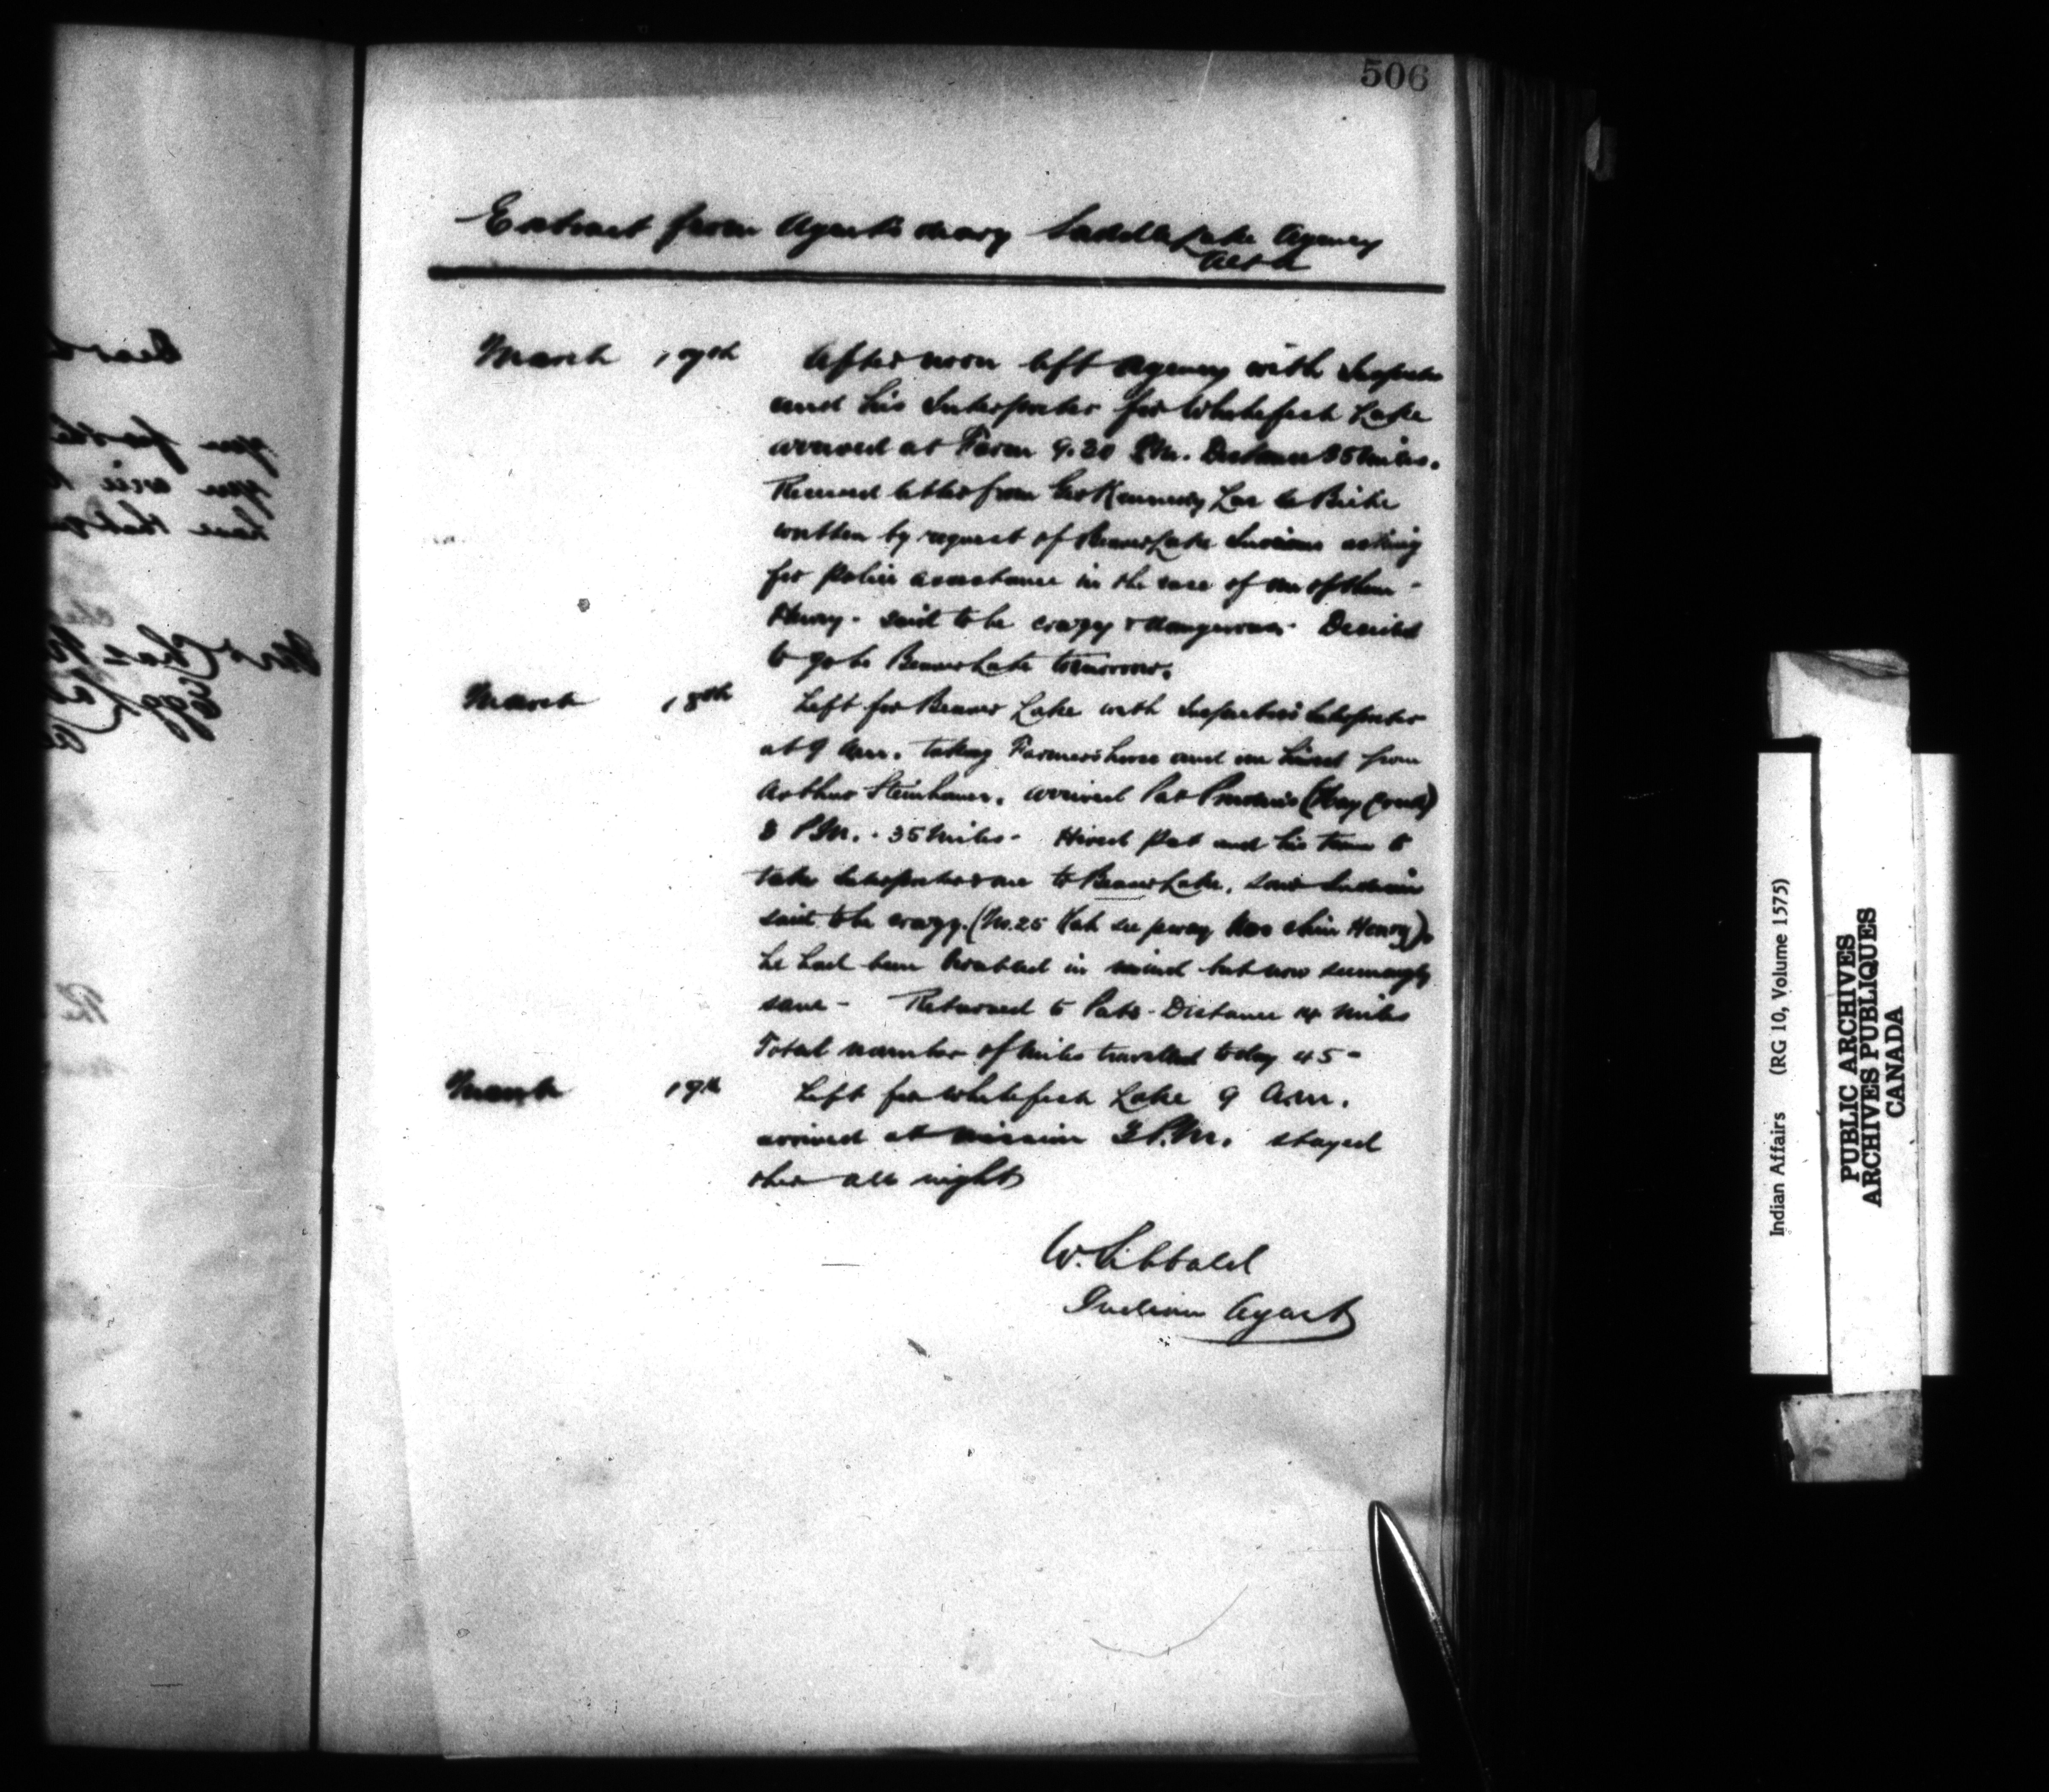 506
Extract from Agent's diary Saddle Lake Agency
Alta
March 17th Afternoon left Agency with Inspector
and his Interpreter for Whitefish Lake
arrived at Farm 9.20 P.M. Distance 35 miles.
Received letter from Geo Kennedy Lac la Biche
written by request of Beaver Lake Indians asking
for Police assistance in the case of one of them -
Henry - said to be crazy & dangerous - Decided
to go to Beaver Lake tomorrow.
March 18th Left for Beaver Lake with Inspector's Interpreter
at 9 A.m. taking Farmer's horse and one hired from
Arthur Steinhauer. arrived Pat (Hay Creek)
3 P.M. - 35 miles - Hired Pat and his team to
take Interpreter & me to Beaver Lake, saw Indian
said to be crazy. (No. 25 Henry).
he had been troubled in mind but now seemingly
sane - Returned to Pats - Distance 14 miles
Total number of miles travelled today 45 -
March 19th Left for Whitefish Lake 9 A.m.
arrived at mission 3 P.M. stayed
there all night
W. Sibbald
Indian Agent
Indian Affairs (RG 10, Volume 1575)
PUBLIC ARCHIVES
ARCHIVES PUBLIQUES
CANADA